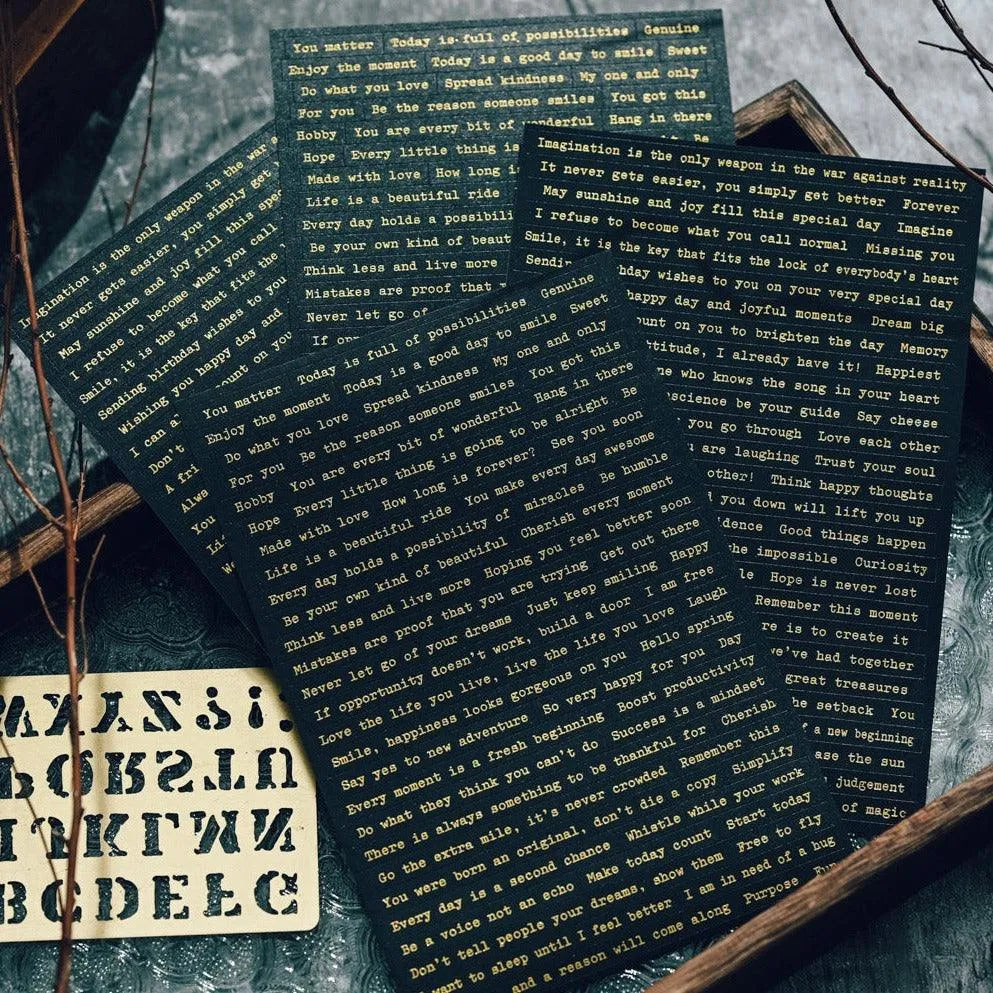 You matter Today is full of possibilities Genuine
Enjoy the moment Today is a good day to smile Sweet
Do what you love Spread kindness My one and only
For you Be the reason someone smiles You got this
Hobby You are every bit of wonderful Hang in there
Hope Every little thing is
Be
Made with love How long
Life is a beautiful ride
Every day holds a
Be your own kind of
Think less and live more
Mistakes are proof that
Never let go of
Imagination is the only weapon in the war against reality
It never gets easier, you simply get better Forever
May sunshine and joy fill this special day Imagine
I refuse to become what you call normal Missing you
Smile, it is the key that fits the lock of everybody's heart
wishes to you on your very special day
happy day and joyful moments Dream big
on you to brighten the day Memory
I already have it! Happiest
who knows the song in your heart
be your guide Say cheese
you go through Love each other
are laughing Trust your soul
other! Think happy thoughts
you down will lift you up
Good things happen
the impossible Curiosity
Hope is never lost
Remember this moment
is to create it
we've had together
great treasures
setback You
a new beginning
the sun
judgement
of magic
Imagination is the only weapon in the war
It never gets easier, you simply get
May sunshine and joy fill this
I refuse to become what you call
Smile, it is the key that fits the
Sending birthday wishes to you
Wishing you happy day and
I can on you
Don't
You matter Today is full of possibilities Genuine
Enjoy the moment Today is a good day to smile Sweet
Do what you love Spread kindness My one and only
For you Be the reason someone smiles You got this
Hobby You are every bit of wonderful Hang in there
Hope Every little thing is going to be alright Be
Made with love How long is forever? See you soon
Life is a beautiful ride You make every day awesome
Every day holds a possibility of miracles Be humble
Be your own kind of beautiful Cherish every moment
Think less and live more Hoping you feel better soon
Mistakes are proof that you are trying Get out there
Never let go of your dreams Just keep smiling Happy
If opportunity doesn't work, build a door I am free
Love the life you live, live the life you love Laugh
Smile, happiness looks gorgeous on you Hello spring
Say yes to new adventure So very happy for you Day
Every moment is a fresh beginning Boost productivity
Do what they think you can't do Success is a mindset
There is always something to be thankful for Cherish
Go the extra mile, it's never crowded Remember this
You were born an original, don't die a copy Simplify
Every day is a second chance Whistle while your work
Be a voice not an echo Make today count Start today
Don't tell people your dreams, show them Free to fly
want to sleep until I feel better I am in need of a hug
and a reason will come along Purpose